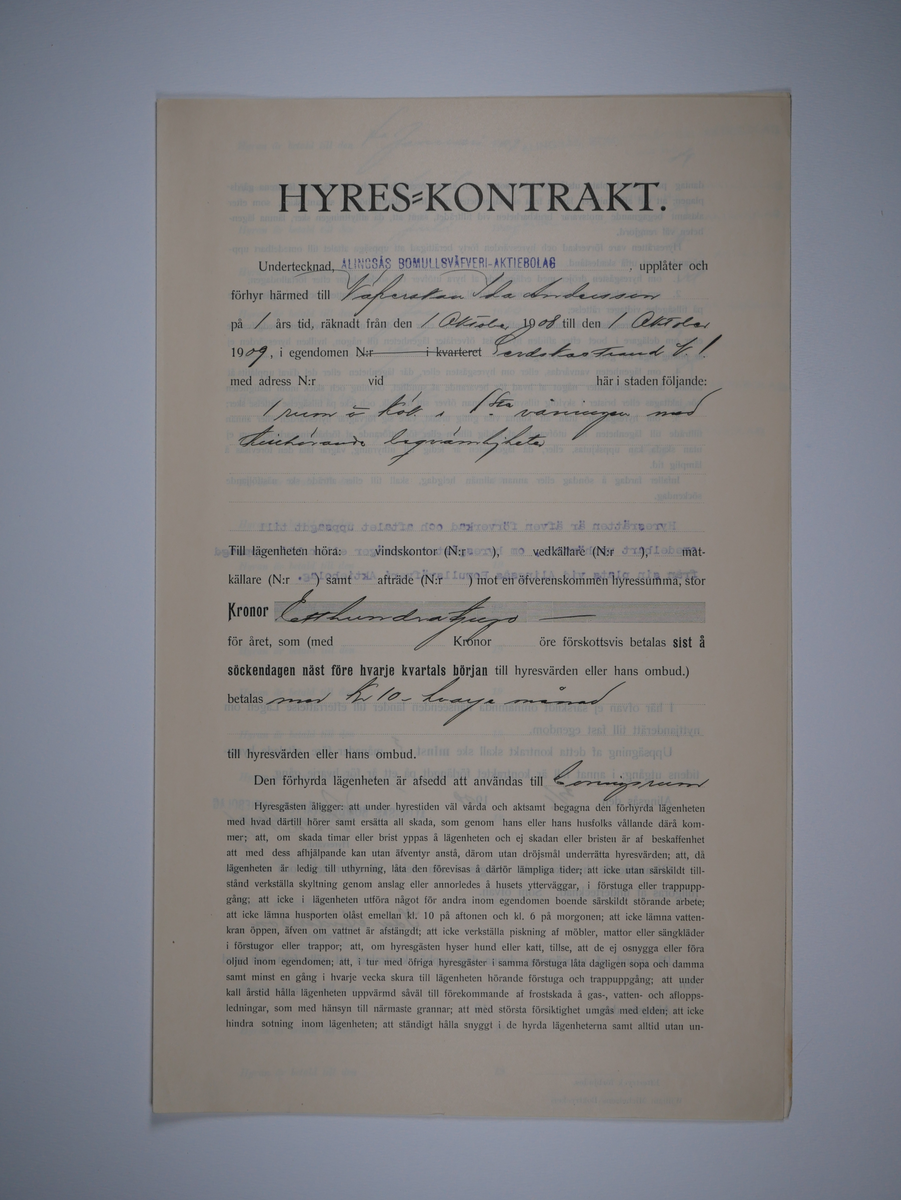 HYRES=KONTRAKT.
Undertecknad, ALINGSÅS BOMULLSVÄFVERI-AKTIEBOLAG, upplåter och
förhyr härmed till Väferskan Ida Andersson
på 1 års tid, räknadt från den 1 Oktober 1908 till den 1 Oktober
1909, i egendomen N:r i kvarteret
med adress N:r vid här i staden följande:
1 rum o Kök i 1sta våningen med
tillhörande beqvämligheter
Till lägenheten höra: vindskontor (N:r ), vedkällare (N:r ), mat-
källare (N:r ) samt afträde (N:r ) mot en öfverenskommen hyressumma, stor
Kronor Etthundratjugo —
för året, som (med Kronor öre förskottsvis betalas sist å
söckendagen näst före hvarje kvartals början till hyresvärden eller hans ombud.)
betalas med Kr 10 – hvarje månad
till hyresvärden eller hans ombud.
Den förhyrda lägenheten är afsedd att användas till boningsrum
Hyresgästen åligger: att under hyrestiden väl vårda och aktsamt begagna den förhyrda lägenheten
med hvad därtill hörer samt ersätta all skada, som genom hans eller hans husfolks vållande därå kom-
mer; att, om skada timar eller brist yppas å lägenheten och ej skadan eller bristen är af beskaffenhet
att med dess afhjälpande kan utan äfventyr anstå, därom utan dröjsmål underrätta hyresvärden; att, då
lägenheten är ledig till uthyrning, låta den förevisas å därför lämpliga tider; att icke utan särskildt till-
stånd verkställa skyltning genom anslag eller annorledes å husets ytterväggar, i förstuga eller trappupp-
gång; att icke i lägenheten utföra något för andra inom egendomen boende särskildt störande arbete;
att icke lämna husporten olåst emellan kl. 10 på aftonen och kl. 6 på morgonen; att icke lämna vatten-
kran öppen, äfven om vattnet är afstängdt; att icke verkställa piskning af möbler, mattor eller sängkläder
i förstugor eller trappor; att, om hyresgästen hyser hund eller katt, tillse, att de ej osnygga eller föra
oljud inom egendomen; att, i tur med öfriga hyresgäster i samma förstuga låta dagligen sopa och damma
samt minst en gång i hvarje vecka skura till lägenheten hörande förstuga och trappuppgång; att under
kall årstid hålla lägenheten uppvärmd såväl till förekommande af frostskada å gas-, vatten- och aflopps-
ledningar, som med hänsyn till närmaste grannar; att med största försiktighet umgås med elden; att icke
hindra sotning inom lägenheten; att ständigt hålla snyggt i de hyrda lägenheterna samt alltid utan un-